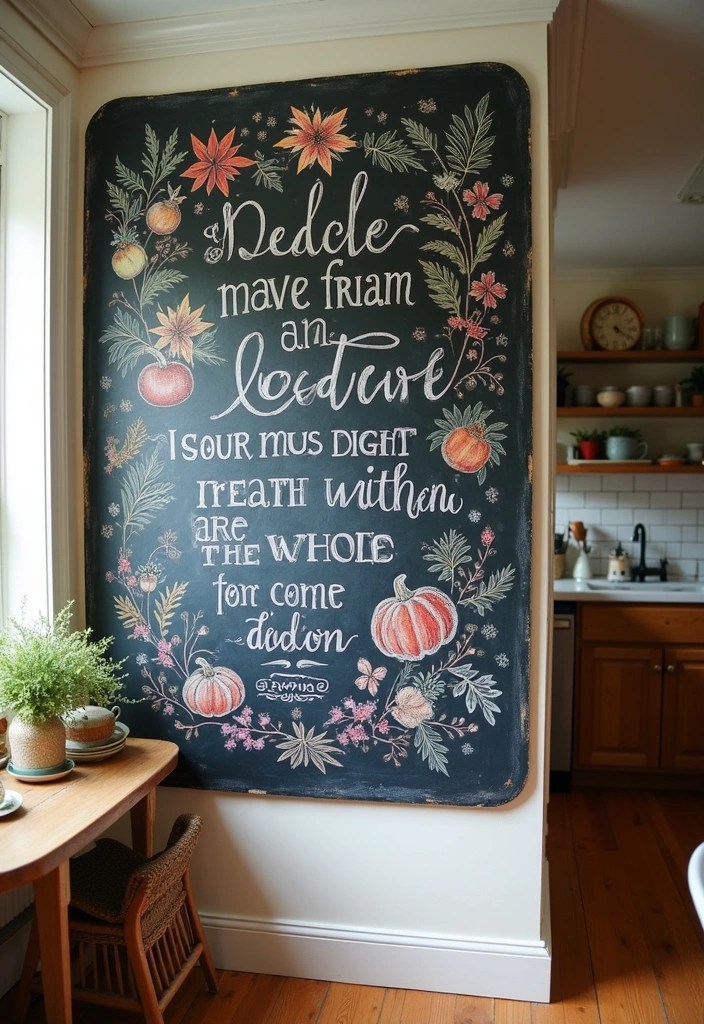 Dedcle
mave friam
an
locdeve
I SOUR MUS DIGHT
ITEATH
ARE
THE WHOLE
for come
dedon